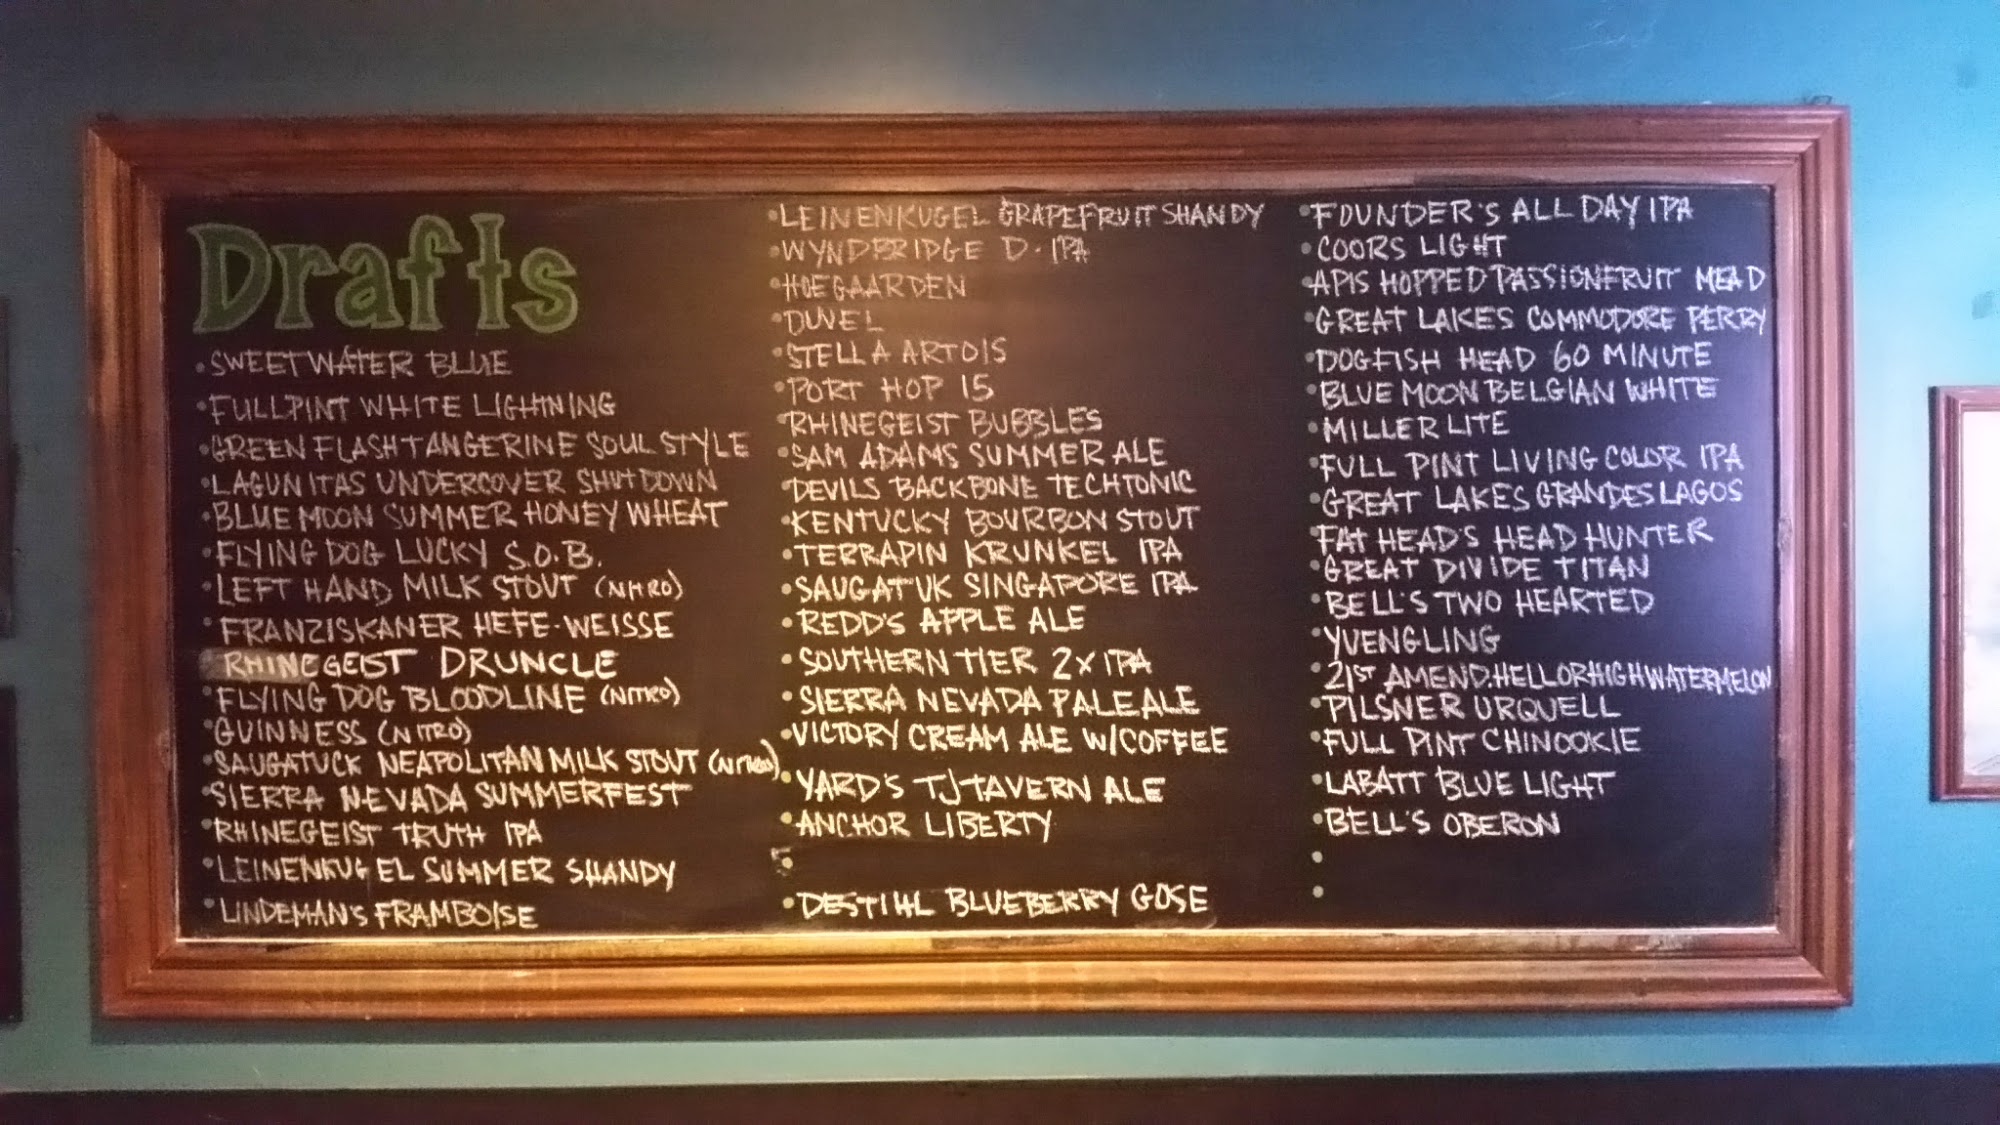 Drafts
• SWEETWATER BLUE
• FULLPINT WHITE LIGHTNING
• GREEN FLASH TANGERINE SOUL STYLE
• LAGUNITAS UNDERCOVER SHUTDOWN
• BLUE MOON SUMMER HONEY WHEAT
• FLYING DOG LUCKY S.O.B.
• LEFT HAND MILK STOUT (NITRO)
• FRANZISKANER HEFE-WEISSE
RHINEGEIST DRUNCLE
• FLYING DOG BLOODLINE (NITRO)
• GUINNESS (NITRO)
• SAUGATUCK NEAPOLITAN MILK STOUT (NITRO)
• SIERRA NEVADA SUMMERFEST
• RHINEGEIST TRUTH IPA
• LEINENKUGEL SUMMER SHANDY
• LINDEMAN'S FRAMBOISE
• LEINENKUGEL GRAPEFRUIT SHANDY
• WYNDBRIDGE D. IPA
• HOEGAARDEN
• DUVEL
• STELLA ARTOIS
• PORT HOP 15
• RHINEGEIST BUBBLES
• SAM ADAMS SUMMER ALE
• DEVILS BACKBONE TECHTONIC
• KENTUCKY BOURBON STOUT
• TERRAPIN KRUNKEL IPA
• SAUGATUK SINGAPORE IPA
• REDD'S APPLE ALE
• SOUTHERN TIER 2X IPA
• SIERRA NEVADA PALE ALE
• VICTORY CREAM ALE W/COFFEE
• YARD'S TJ TAVERN ALE
• ANCHOR LIBERTY
• DESTIHL BLUEBERRY GOSE
• FOUNDER'S ALL DAY IPA
• COORS LIGHT
• APIS HOPPED PASSIONFRUIT MEAD
• GREAT LAKES COMMODORE PERRY
• DOGFISH HEAD 60 MINUTE
• BLUE MOON BELGIAN WHITE
• MILLER LITE
• FULL PINT LIVING COLOR IPA
• GREAT LAKES GRANDES LAGOS
• FAT HEAD'S HEAD HUNTER
• GREAT DIVIDE TITAN
• BELL'S TWO HEARTED
• YUENGLING
• 21ST AMEND. HELL OR HIGH WATERMELON
• PILSNER URQUELL
• FULL PINT CHINOOKIE
• LABATT BLUE LIGHT
• BELL'S OBERON